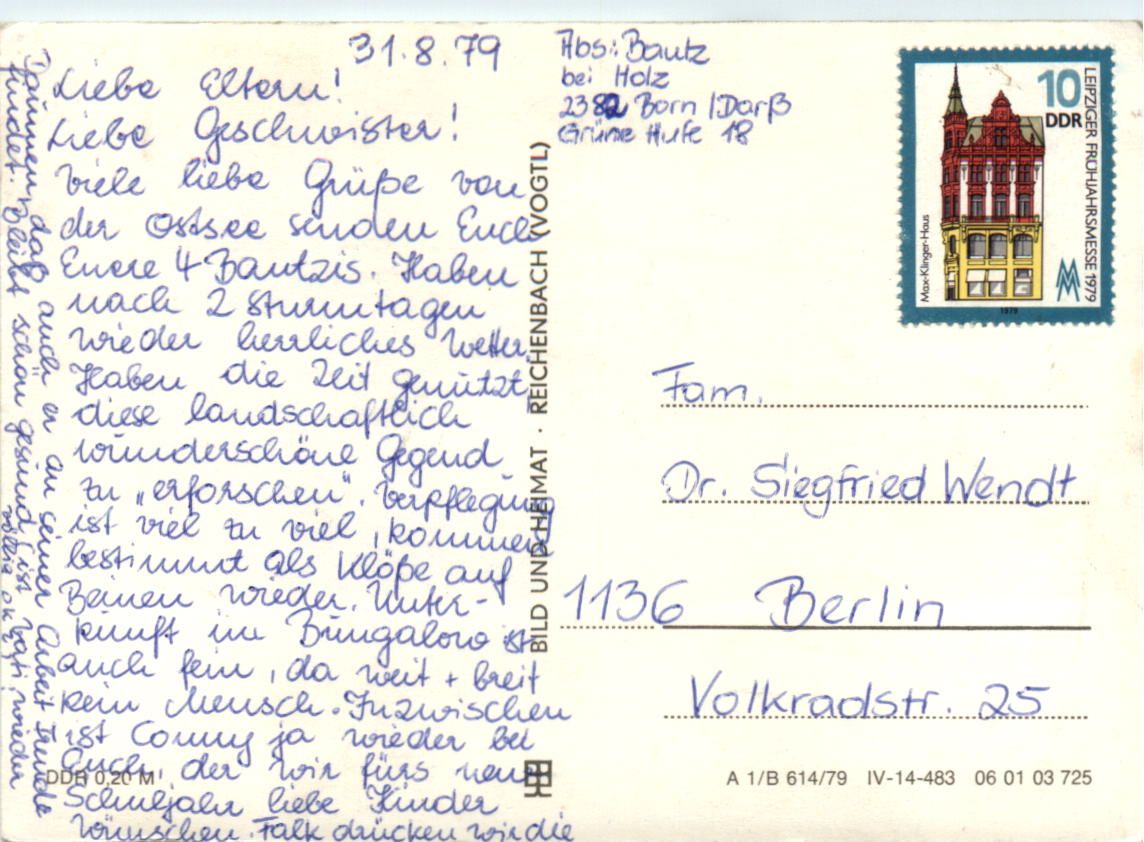 31.8.79
Liebe Eltern!
Liebe Geschwister!
Viele liebe Grüße von
der Ostsee senden Euch
Euere 4 Bautzis. Haben
nach 2 Sturmtagen
wieder herrliches Wetter.
Haben die Zeit genutzt
diese landschaftlich
wunderschöne Gegend
zu „erforschen". Verpflegung
ist viel zu viel, kommen
bestimmt als Klöße auf
Beinen wieder. Unter-
kunft im Bungalow ist
auch fein, da weit + breit
kein Mensch. Inzwischen
ist Conny ja wieder bei
Euch, der wir fürs neue
Schuljahr liebe Kinder
wünschen. Falk drücken wir die
Daumen, daß auch er an seiner Arbeit Freude
findet. Bleibt schön gesund, ist Vati wieder
völlig ok?
Abs.: Bautz
bei Holz
2382 Born / Darß
Grüne Hufe 18
10
DDR
LEIPZIGER FRÜHJAHRSMESSE 1979
Max-Klinger-Haus
1979
BILD UND HEIMAT · REICHENBACH (VOGTL)
Fam.
Dr. Siegfried Wendt
1136 Berlin
Volkradstr. 25
DDR 0,20 M
A 1/B 614/79 IV-14-483 06 01 03 725